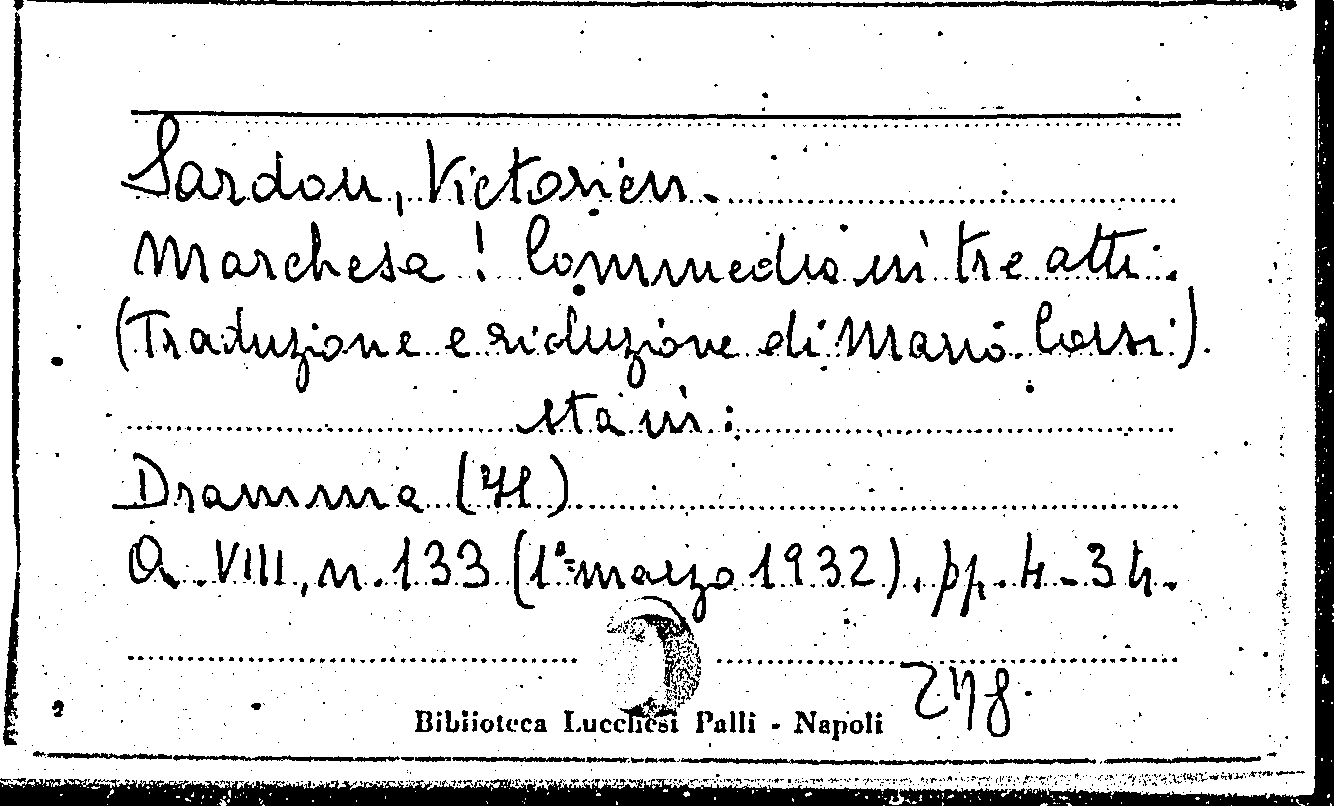 Sardou, Victorien.
Marchesa! Commedia in tre atti.
(Traduzione e riduzione di Mario Corsi).
sta in:
Dramma (Il)
A. VIII, n. 133 (1° marzo 1932), pp. 4-34.
Biblioteca Lucchesi Palli - Napoli
2